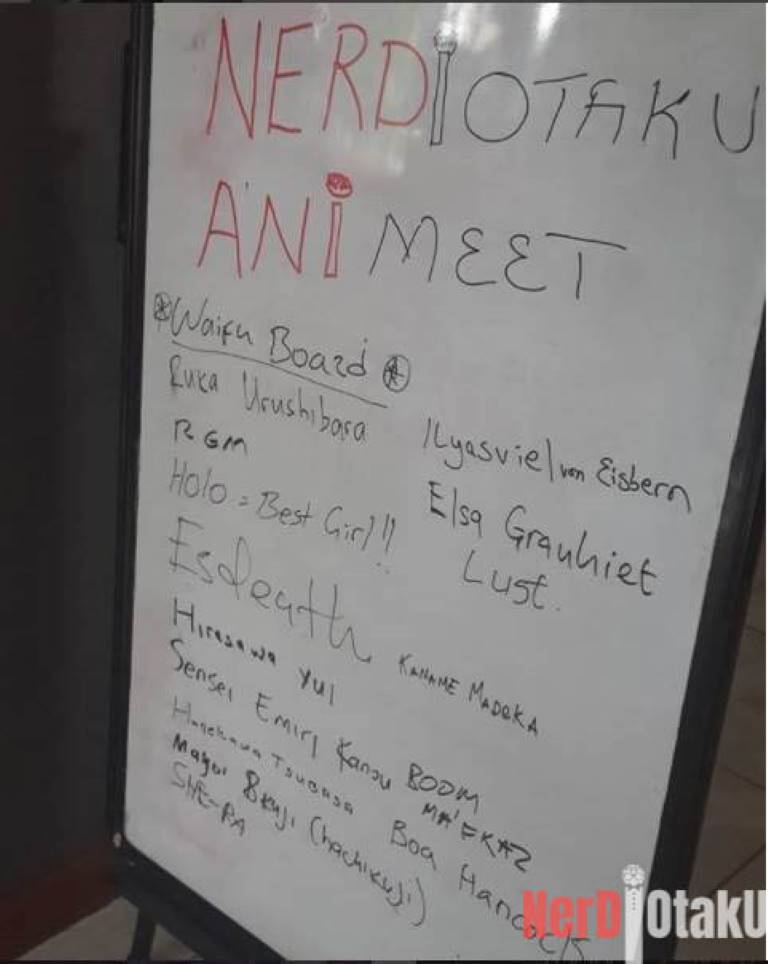 NERD OTAKU
ANiMEET
Waifu Board
Ruka Urushibara
RGM
Holo = Best Girl!!
Esdeath
Hirasawa Yui
Sensei Emiri Kanou
Hanekawa Tsubasa
Mayoi 8kuji (hachikuji)
SHE-RA
Ilyasviel von Eisbern
Elsa Grauhiet
Lust.
KANAME MADOKA
BOOM
Boa Hancock
NerD OtakU